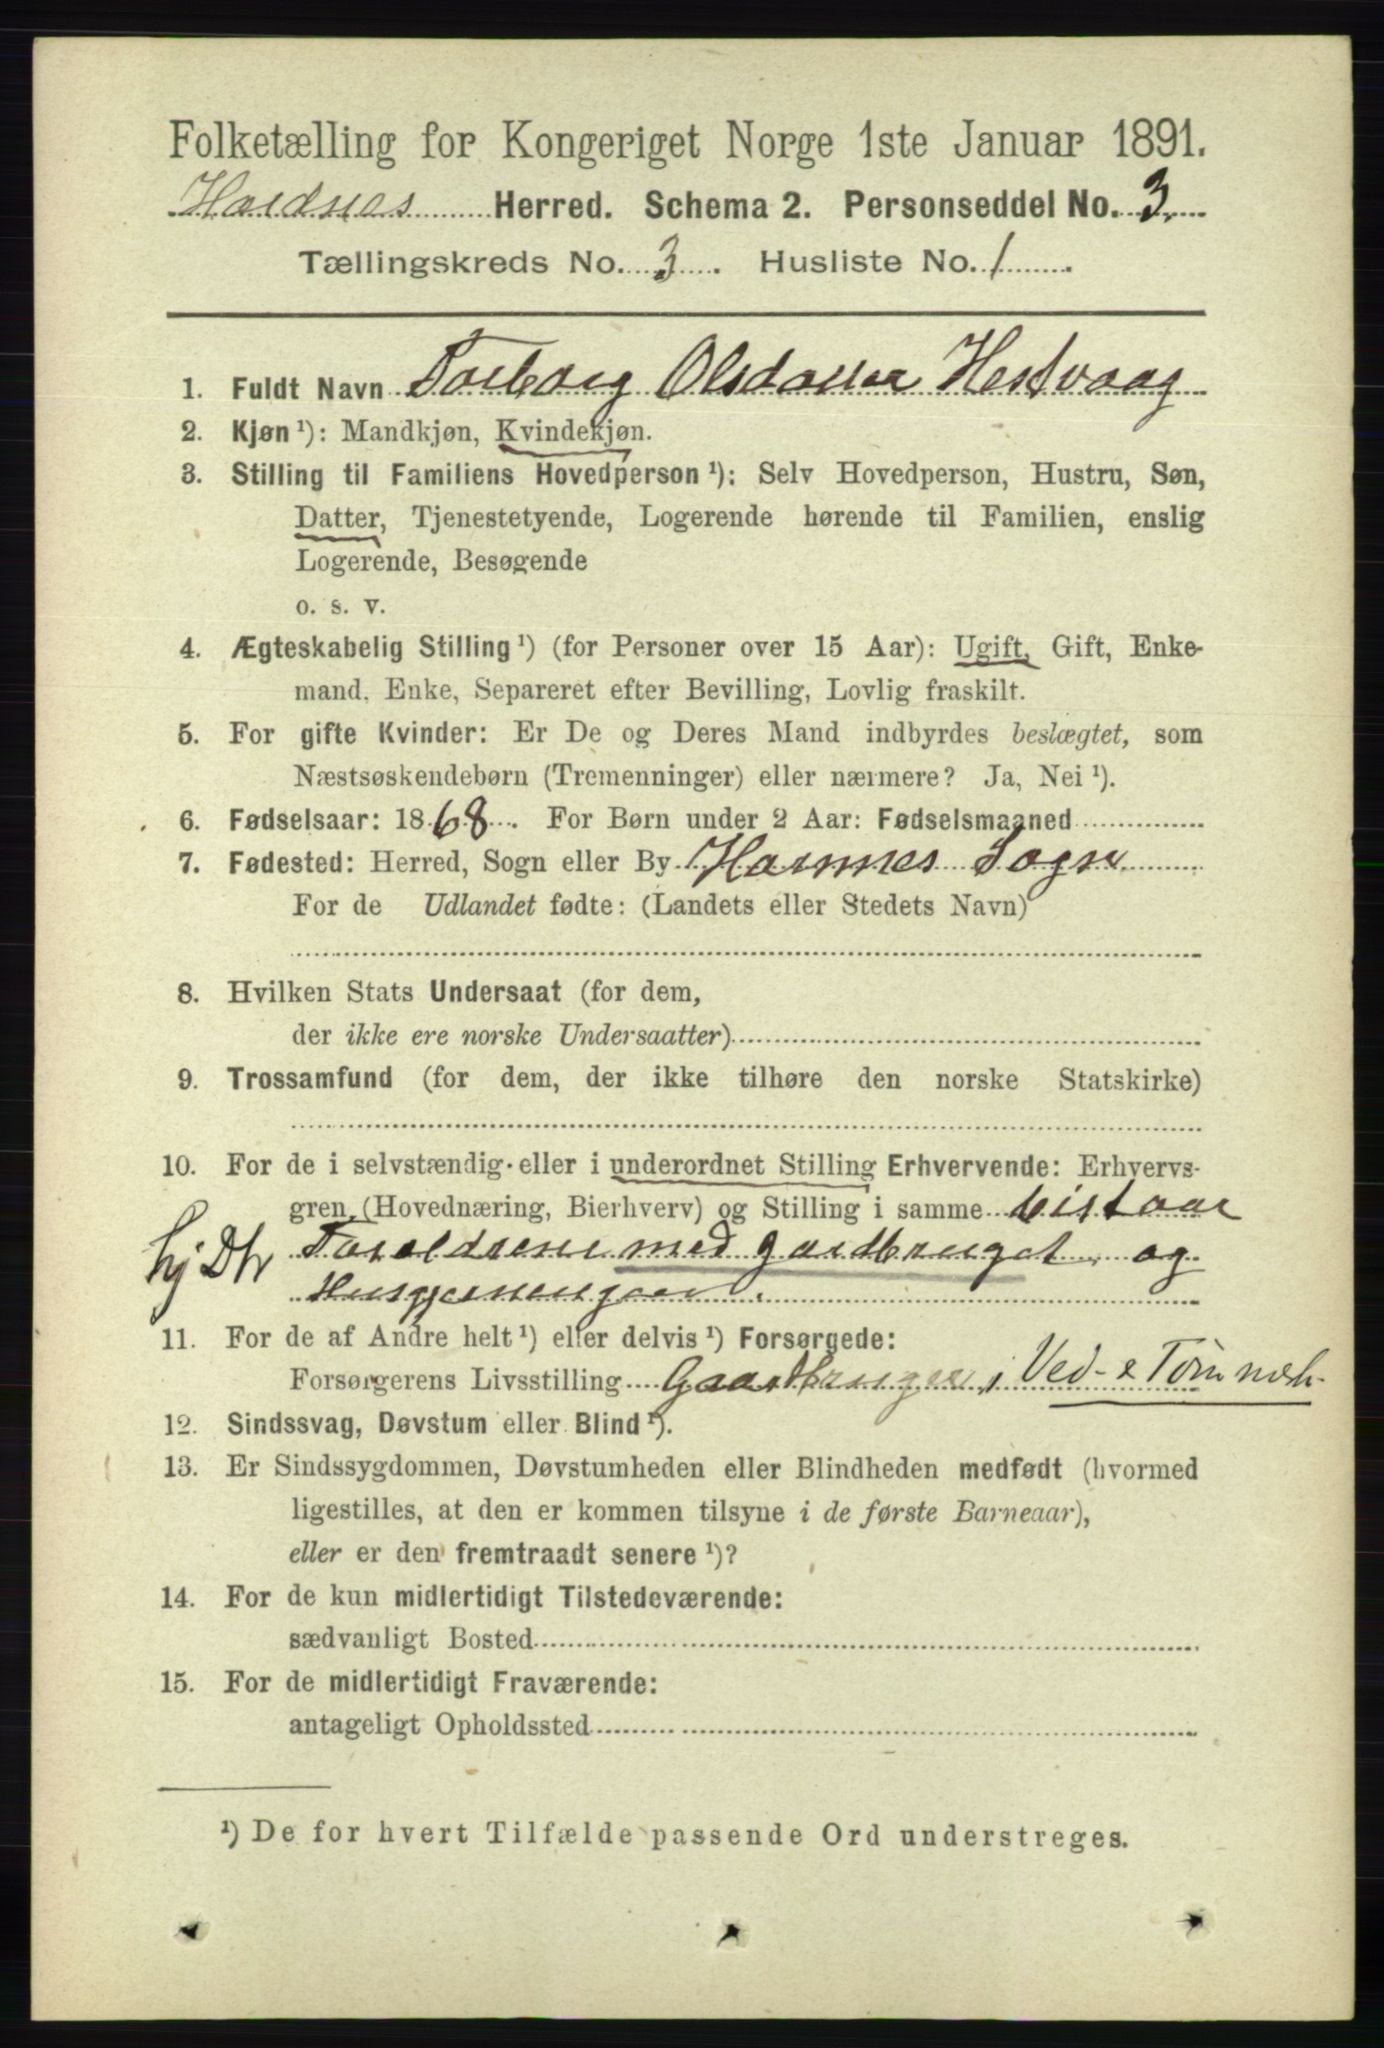 Folketælling for Kongeriget Norge 1ste Januar 1891.
Herred. Schema 2. Personseddel No. 3.
Tællingskreds No. 3. Husliste No. 1.
1. Fuldt Navn Torborg Olsdatter Hestvaag
2. Kjøn ¹): Mandkjøn, Kvindekjøn.
3. Stilling til Familiens Hovedperson ¹): Selv Hovedperson, Hustru, Søn,
Datter, Tjenestetyende, Logerende hørende til Familien, enslig
Logerende, Besøgende
o. s. v.
4. Ægteskabelig Stilling ¹) (for Personer over 15 Aar): Ugift, Gift, Enke-
mand, Enke, Separeret efter Bevilling, Lovlig fraskilt.
5. For gifte Kvinder: Er De og Deres Mand indbyrdes beslægtet, som
Næstsøskendebørn (Tremenninger) eller nærmere? Ja, Nei ¹).
6. Fødselsaar: 1868. For Børn under 2 Aar: Fødselsmaaned
7. Fødested: Herred, Sogn eller By Sogn
For de Udlandet fødte: (Landets eller Stedets Navn)
8. Hvilken Stats Undersaat (for dem,
der ikke ere norske Undersaatter)
9. Trossamfund (for dem, der ikke tilhøre den norske Statskirke)
10. For de i selvstændig eller i underordnet Stilling Erhvervende: Erhvervs-
gren (Hovednæring, Bierhverv) og Stilling i samme bistaar
hj Dtr Foreldrene med gardbruget og
Husgjerningen.
11. For de af Andre helt ¹) eller delvis ¹) Forsørgede:
Forsørgerens Livsstilling Gaardbruger, i Ved- & Tøm
12. Sindssvag, Døvstum eller Blind ¹).
13. Er Sindssygdommen, Døvstumheden eller Blindheden medfødt (hvormed
ligestilles, at den er kommen tilsyne i de første Barneaar),
eller er den fremtraadt senere ¹)?
14. For de kun midlertidigt Tilstedeværende:
sædvanligt Bosted
15. For de midlertidigt Fraværende:
antageligt Opholdssted
¹) De for hvert Tilfælde passende Ord understreges.